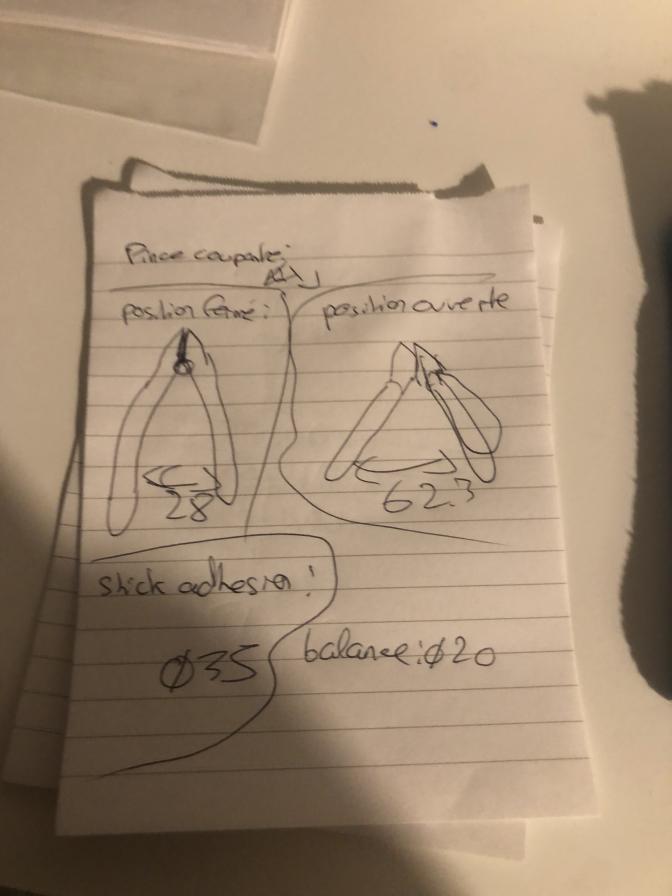 Pince coupante:
position fermé:
position ouverte
28
62.3
stick adhesion:
Ø35
balance: Ø20